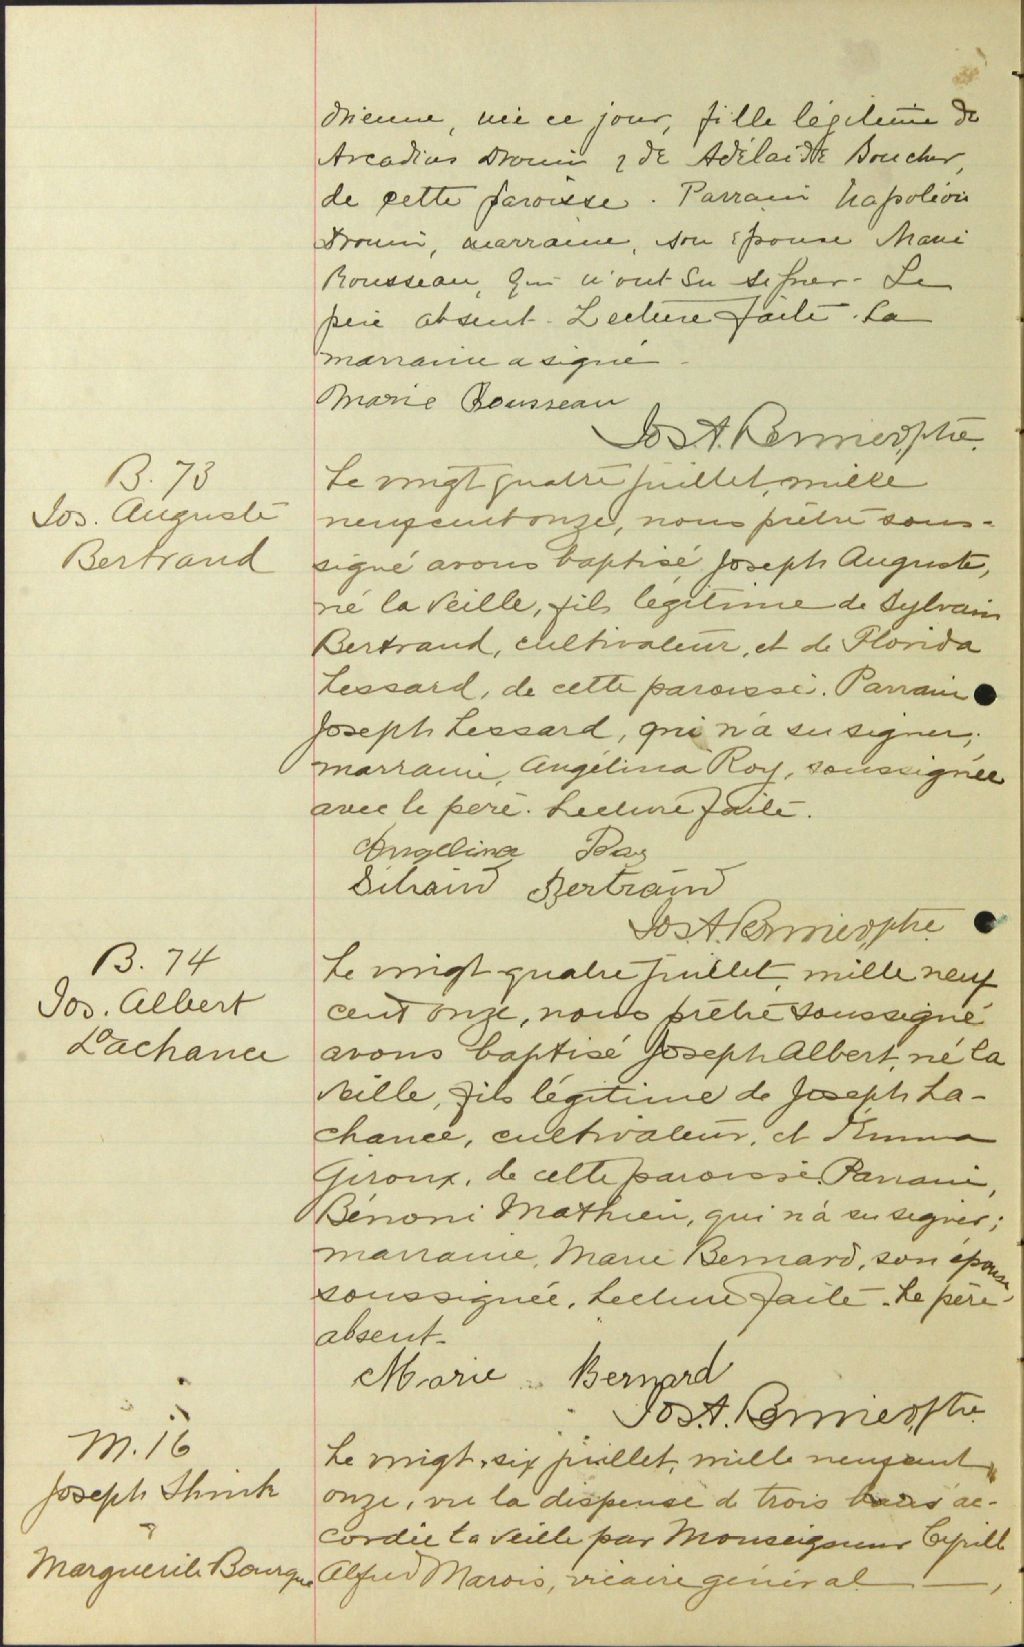 drienne, née ce jour, fille légitime de
Arcadius Drouin & de Adélaïde Boucher,
de cette paroisse. Parrain Napoléon
Drouin, marraine, son épouse Marie
Rousseau, qui n'ont su signer. Le
père absent. Lecture faite. La
marraine a signé
Marie Rousseau
Jos. A. Bernier, ptre.
B. 73
Jos. Auguste
Bertrand
Le vingt quatre juillet, mille
neuf cent onze, nous prêtre sous-
signé avons baptisé Joseph Auguste,
né la veille, fils légitime de Sylvain
Bertrand, cultivateur, et de Florida
Lessard, de cette paroisse. Parrain
Joseph Lessard, qui n'a su signer;
marraine, Angélina Roy, soussignée
avec le père. Lecture faite.
Angelina Roy
Silvain Bertrand
Jos. A. Bernier, ptre.
B. 74
Jos. Albert
Lachance
Le vingt-quatre juillet, mille neuf
cent onze, nous prêtre soussigné
avons baptisé Joseph Albert, né la
veille, fils légitime de Joseph La-
chance, cultivateur, et Emma
Giroux, de cette paroisse. Parrain,
Bénoni Mathieu, qui n'a su signer;
marraine, Marie Bernard, son épouse,
soussignée. Lecture faite. Le père
absent.
Marie Bernard
Jos. A. Bernier, ptre
M. 16
Joseph Shink
&
Marguerite Bourque
Le vingt-six juillet, mille neuf cent
onze, vu la dispense de trois bans ac-
cordée la veille par Monseigneur Cyrille
Alfred Marois, vicaire général —,